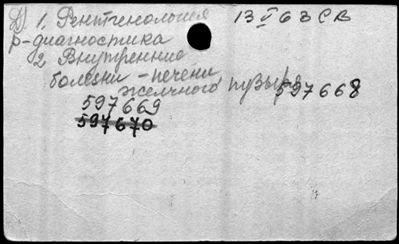 D) 1. Рентгенология 13 I 63 СВ
р-диагностика
2. Внутренние
болезни - печени
желчного пузыря 597668
597669
597670